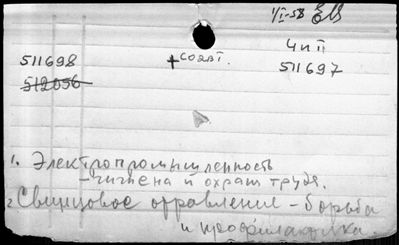 1/I-58
511698
512056
4 и II
511697
1. Электропромышленность
- гигиена и охрат труда.
2. Свинцовое отравление - борьба
и профилактика.